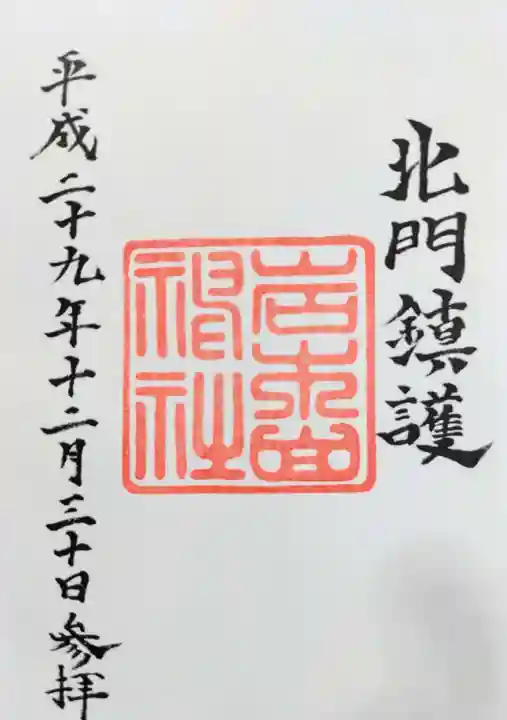 北門鎮護
岩木山神社
平成二十九年十二月三十日参拝